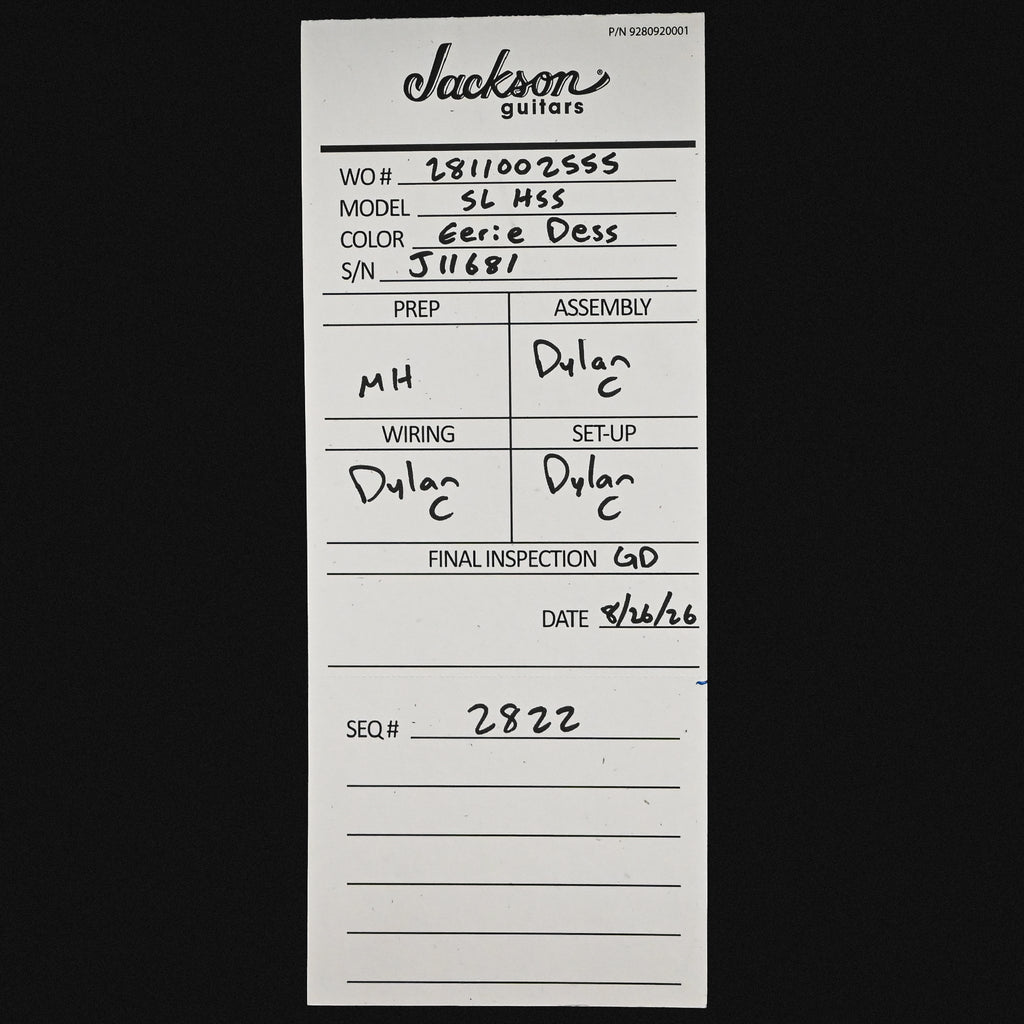 P/N 9280920001
Jackson
guitars
WO # 2811002555
MODEL SL HSS
COLOR Eerie Dess
S/N J11681
PREP ASSEMBLY
MH Dylan C
WIRING SET-UP
Dylan C Dylan C
FINAL INSPECTION GD
DATE 8/26/26
SEQ # 2822